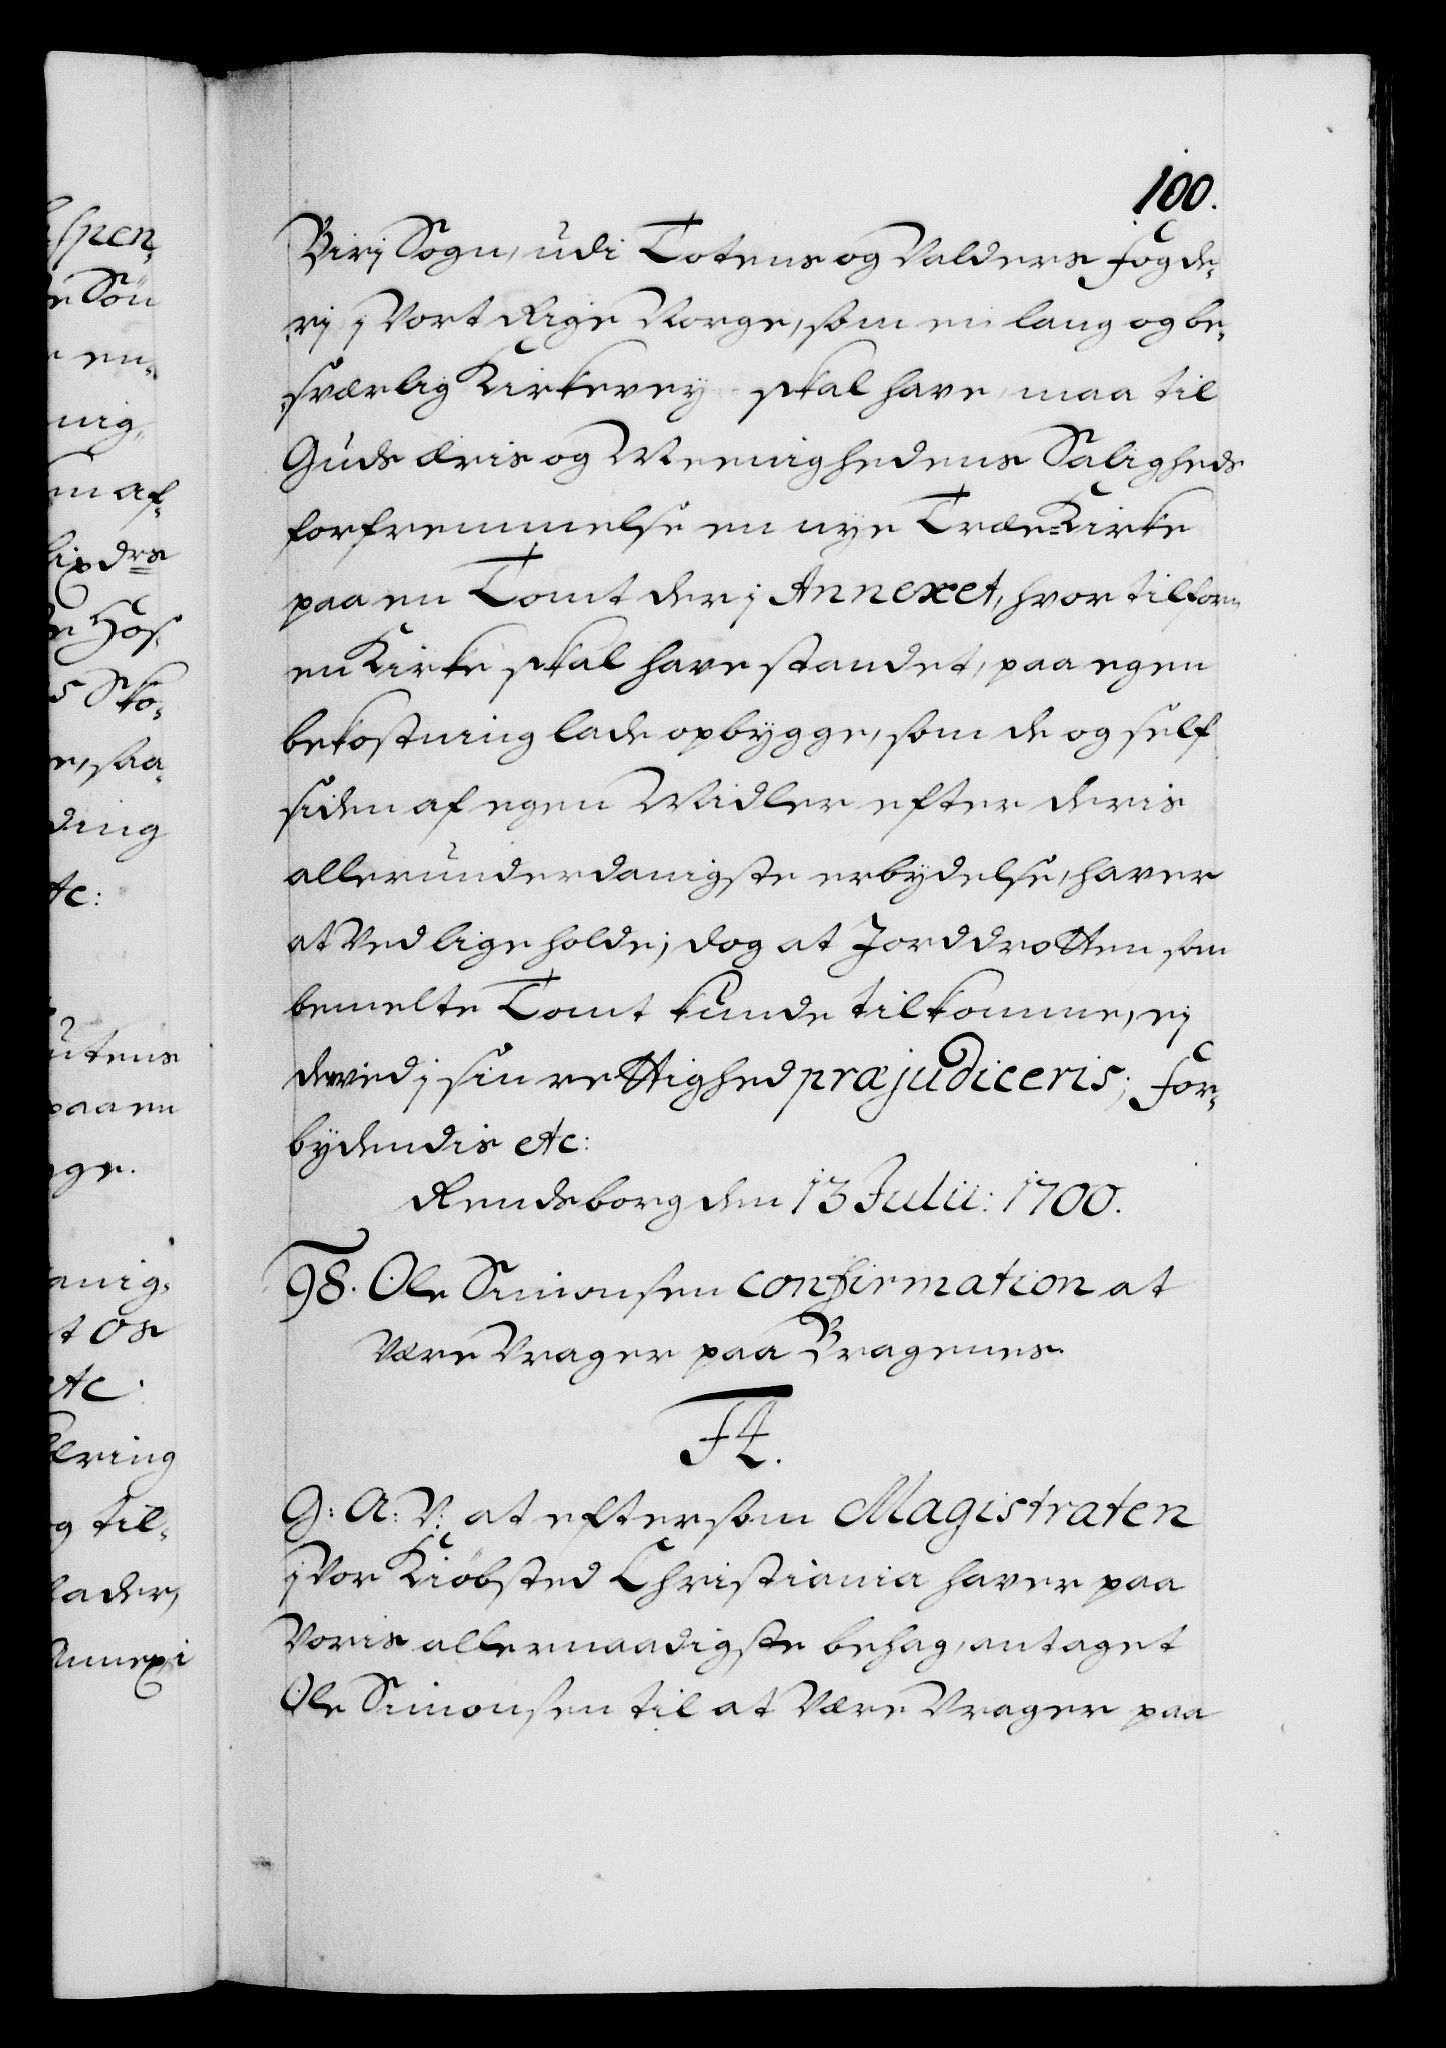 100.
Birj Sogn, udi Totens og Valders Fogde-
rj j Vort Rige Norge, som en lang og be-
sværlig Kirkevey skal have, maa til
Guds æris og Meenighedens Saligheds
forfremmelse en nye Træe-Kirke
paa en Tomt der j Annexet, hvor tilforn
en Kirke skal have standet, paa egen
bekostning lade opbygge, som de og self
siden af egen Midler efter deris
allerunderdanigste erbydelse, haver
at Vedlige holde; dog at Jorddrotten som
bemelte Tomt kunde tilkomme, ej
derved j sin rettighed præjudiceris; For-
bydendis etc:
Rendsborg den 13 Julii: 1700.
98. Ole Simonsen confirmation at
Være Vrager paa Bragenes.
G: A: V: at eftersom Magistraten
j Vor Kiöbsted Christiania haver paa
Voris allernaadigste behag, antaget
Ole Simonsen til at Være Vrager paa
spen-
Sön
en-
nig-
af-
Hos-
Sko-
saa-
ding
etc:
paa en
anig-
os
etc:
til-
lader,
Annexi